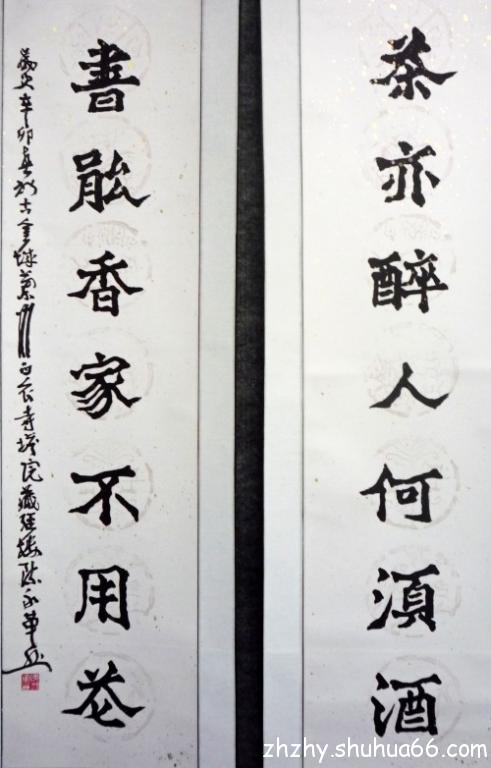 茶亦醉人何湏酒
書䏻香家不用花
歲次辛卯春於古金城蘭州白衣寺塔院藏經樓
zhzhy.shuhua66.com